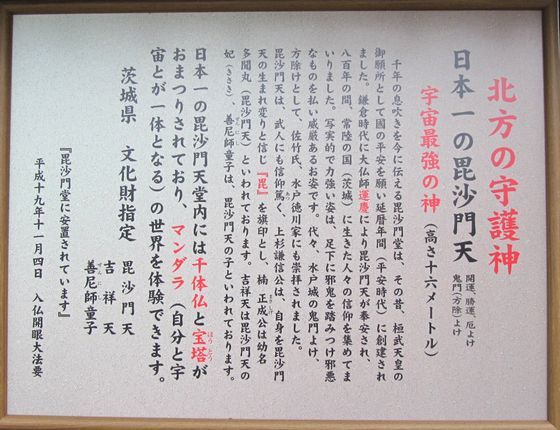 北方の守護神
日本一の毘沙門天
開運、勝運、厄よけ
鬼門(方除)よけ
宇宙最強の神(高さ十六メートル)
千年の息吹きを今に伝える毘沙門堂は、その昔、桓武天皇の
御願所として國の平安を願い延暦年間(平安時代)に創建され
ました。鎌倉時代に大仏師運慶により毘沙門天が奉安され、
八百年の間、常陸の国(茨城)に生きた人々の信仰を集めてま
いりました。写実的で力強い姿は、足下に邪鬼を踏みつけ邪悪
なものを払い威厳あるお姿です。代々、水戸城の鬼門よけ、
方除けとして、佐竹氏、水戸徳川家にも崇拝されました。
毘沙門天は、武人にも信仰篤く、上杉謙信公は、自身を毘沙門
天の生まれ変りと信じ『毘』を旗印とし、楠正成公は幼名
多聞丸(毘沙門天)といわれております。吉祥天は毘沙門天の
妃(きさき)、善尼師童子は、毘沙門天の子といわれております。
日本一の毘沙門天堂内には千体仏と宝塔が
おまつりされており、マンダラ(自分と宇
宙とが一体となる)の世界を体験できます。
茨城県 文化財指定 毘沙門天
吉祥天
善尼師童子
『毘沙門堂に安置されています』
平成十九年十一月四日 入仏開眼大法要